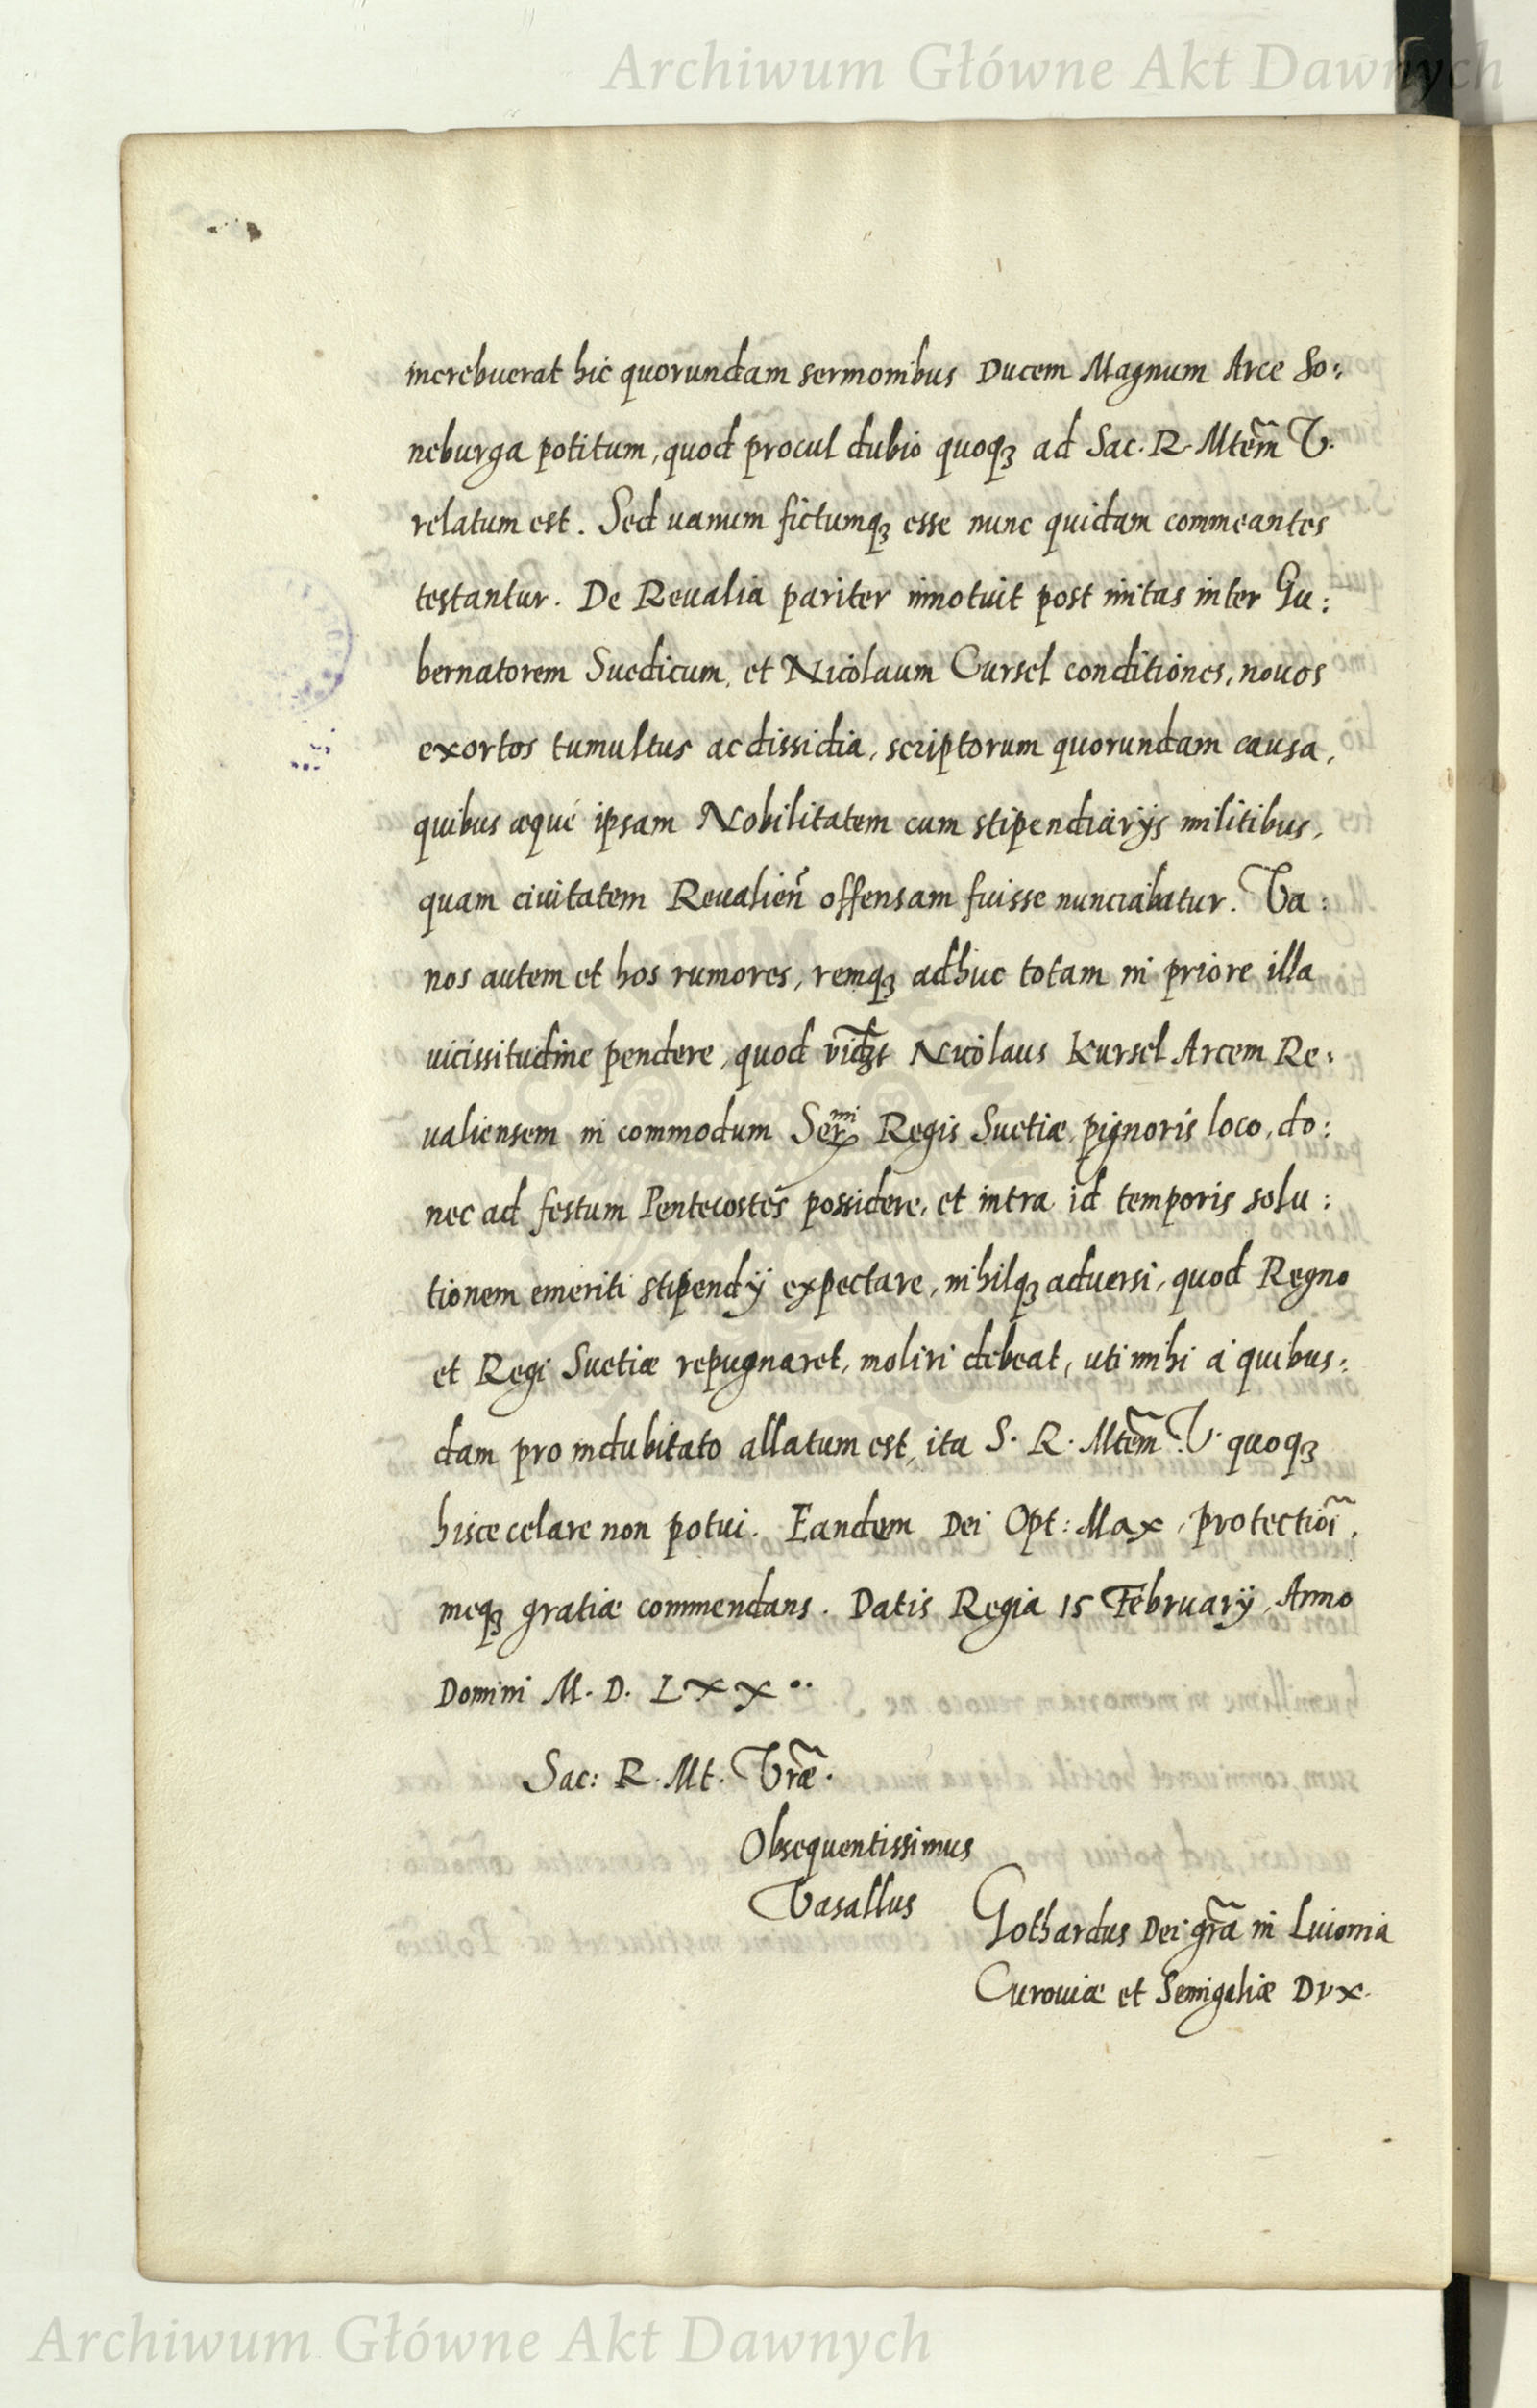 Archiwum Główne Akt Dawnych
increbuerat hic quorundam sermonibus Ducem Magnum Arce So:
neburga potitum, quod procul dubio quoqꝫ ad Sac. R. Mtem̃ V.
relatum est. Sed uanum fictumqꝫ esse nunc quidam commeantes
testantur. De Reualia pariter innotuit post initas inter Gu:
bernatorem Suedicum, et Nicolaum Cursel conditiones, nouos
exortos tumultus ac dissidia, scriptorum quorundam causa,
quibus æque ipsam Nobilitatem cum stipendiarijs militibus,
quam ciuitatem Reualien̄ offensam fuisse nunciabatur. Va:
nos autem et hos rumores, remqꝫ adhuc totam in priore illa
uicissitudine pendere, quod vidꝫt Nicolaus Kursel Arcem Re:
ualiensem in commodum Sermi Regis Suetiæ, pignoris loco, do:
nec ad festum Pentecostes possidere, et intra id temporis solu:
tionem emeriti stipendij expectare, nihilqꝫ aduersi, quod Regno
et Regi Suetiæ repugnaret, moliri debeat, uti mihi a quibus:
dam pro indubitato allatum est, ita S. R. Mtem̃ V. quoqꝫ
hisce celare non potui. Eandem Dei Opt: Max, protectioĩ,
meqꝫ gratiæ commendans. Datis Regia 15 February, Anno
Domini M. D. LXX..
Sac: R. Mt. Vræ̃.
Obsequentissimus
Vasallus
Gothardus Dei gr̃a in Liuonia
Curouiæ et Semigaliæ Dvx.
Archiwum Główne Akt Dawnych